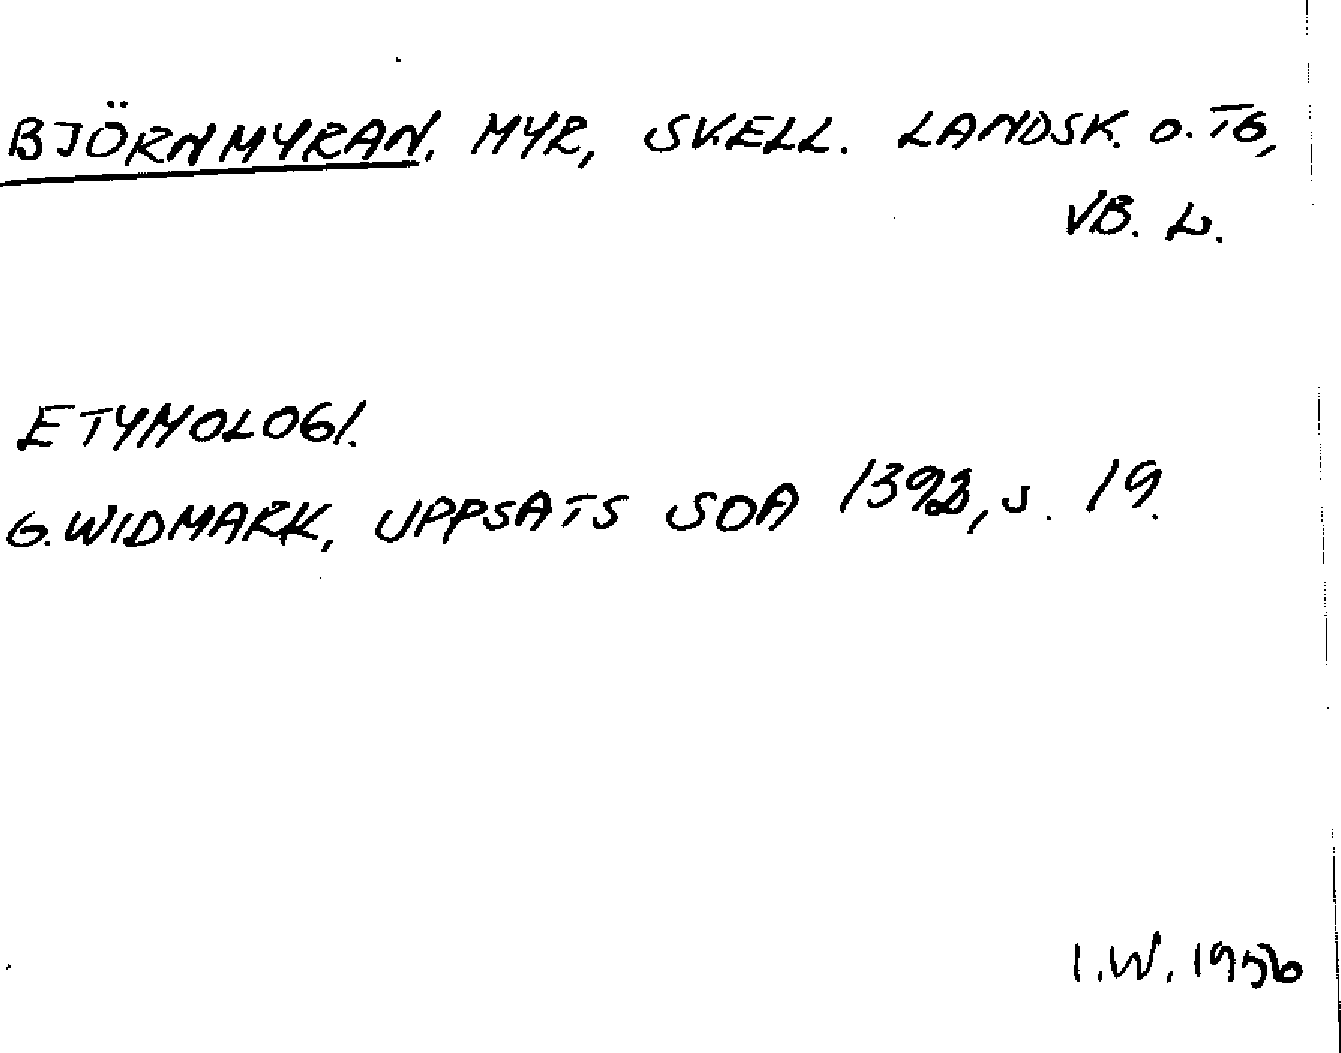 BJÖRNMYRAN, MYR, SKELL. LANDSK. O. TG,
VB. L.
ETYMOLOGI.
G. WIDMARK, UPPSATS SOA 1393, s. 19.
I.W. 1956